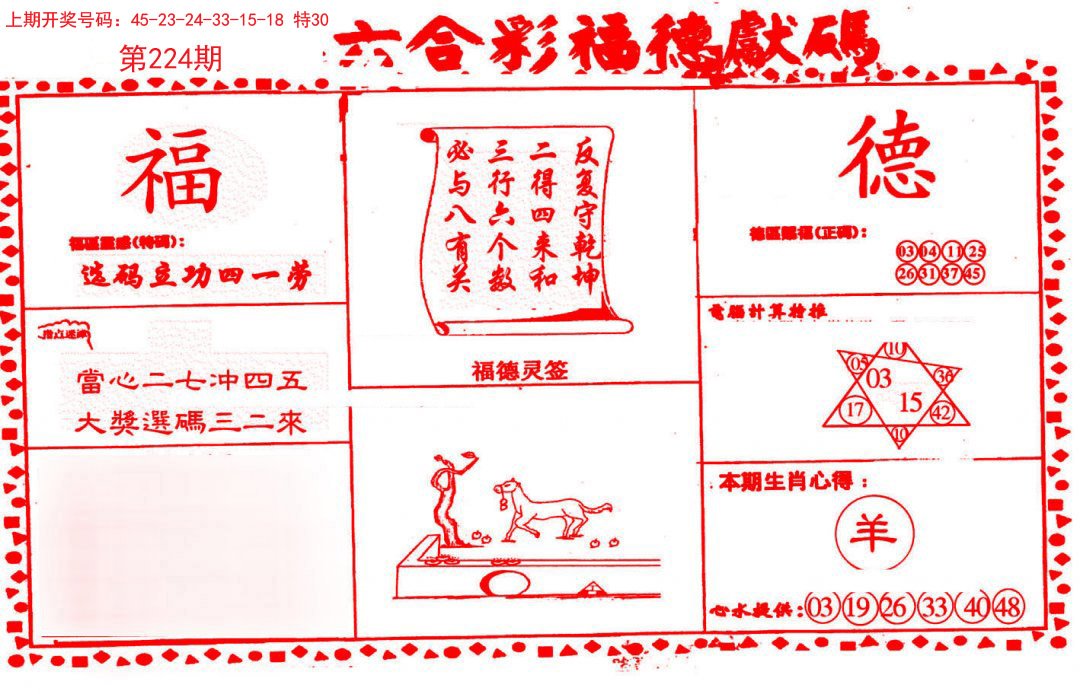 上期开奖号码：45-23-24-33-15-18 特30
第224期
六合彩福德獻碼
福
福區靈感(特碼)：
选码立功四一劳
指点迷津
當心二七冲四五
大獎選碼三二來
反复守乾坤
二得四来和
三行六个数
必与八有关
福德灵签
德
德區賜福(正碼)：
03 04 11 25
26 31 37 45
電腦計算特推
10
05 03 36
17 15 42
10
本期生肖心得：
羊
心水提供：03 19 26 33 40 48